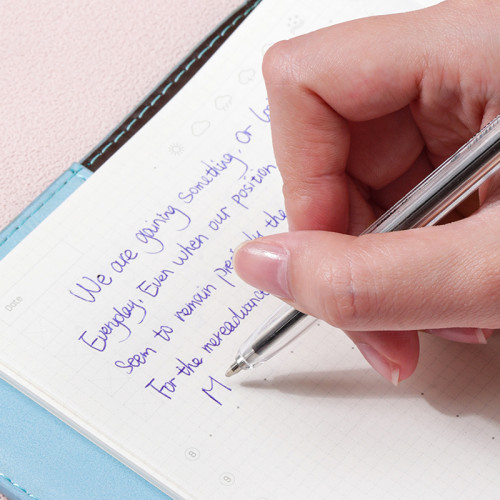 Date
We are gaining something, or
Everyday, Even when our position
seem to remain the
For the mereadvance
M
8
8